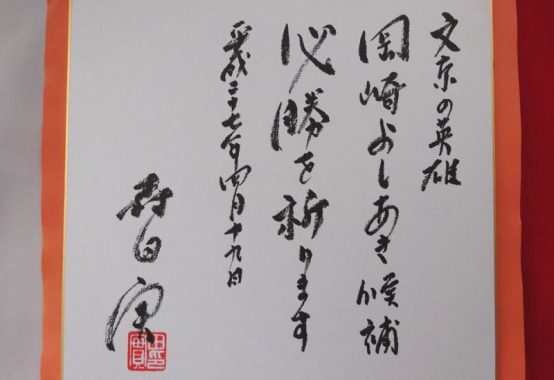 文京の英雄
岡崎よしあき候補
必勝を祈ります
平成二十七年四月十九日
森田実